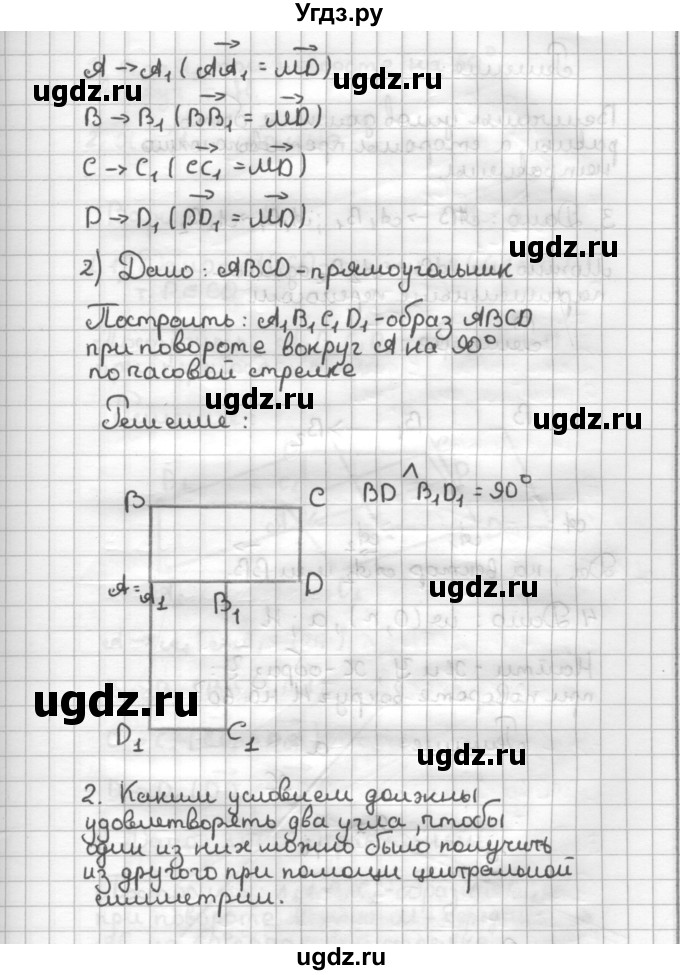 Угдз.ру
A → A₁ (AA₁ = MD)
ugdz.ru
ugdz.ru
B → B₁ (BB₁ = MD)
C → C₁ (CC₁ = MD)
D → D₁ (DD₁ = MD)
ugdz.ru
2) Дано: ABCD - прямоугольник
Построить: A₁B₁C₁D₁ - образ ABCD
при повороте вокруг A на 90°
по часовой стрелке
ugdz.ru
ugdz.ru
Решение:
B C BD ^ B₁D₁ = 90°
A = A₁ B₁ D
ugdz.ru
ugdz.ru
D₁ C₁
ugdz.ru
2. Каким условием должны
удовлетворять два угла, чтобы
один из них можно было получить
из другого при помощи центральной
симметрии.
ugdz.ru